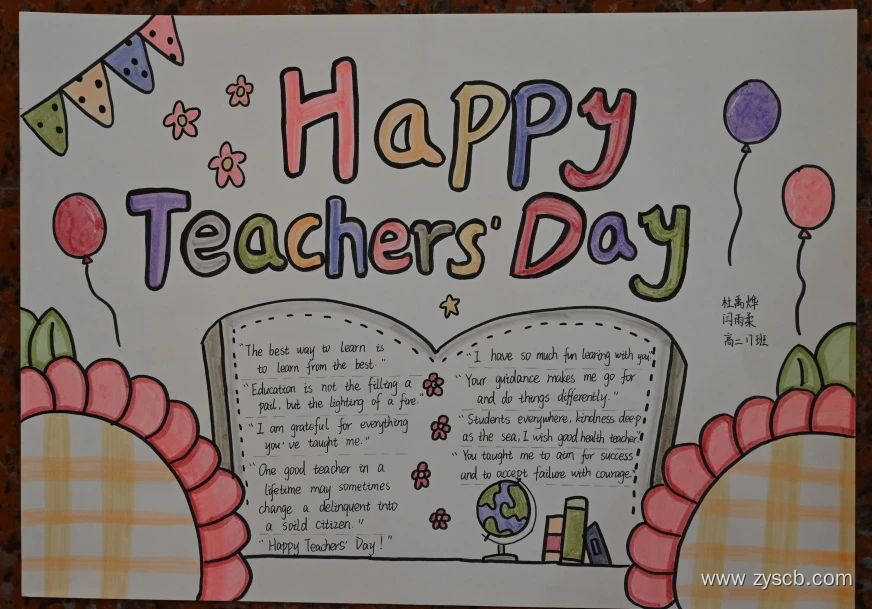 Happy
Teachers' Day
杜禹烨
闫雨柔
高二11班
"The best way to learn is
to learn from the best."
"Education is not the filling a
pail, but the lighting of a fire."
"I am grateful for everything
you've taught me."
"One good teacher in a
lifetime may sometimes
change a delinquent into
a soild citizen."
"Happy Teachers' Day!"
"I have so much fun learing with you."
"Your guidance makes me go for
and do things differently."
"Students everywhere, kindness deep
as the sea, I wish good health teacher."
"You taught me to aim for success
and to accept failure with courage."
www.zyscb.com